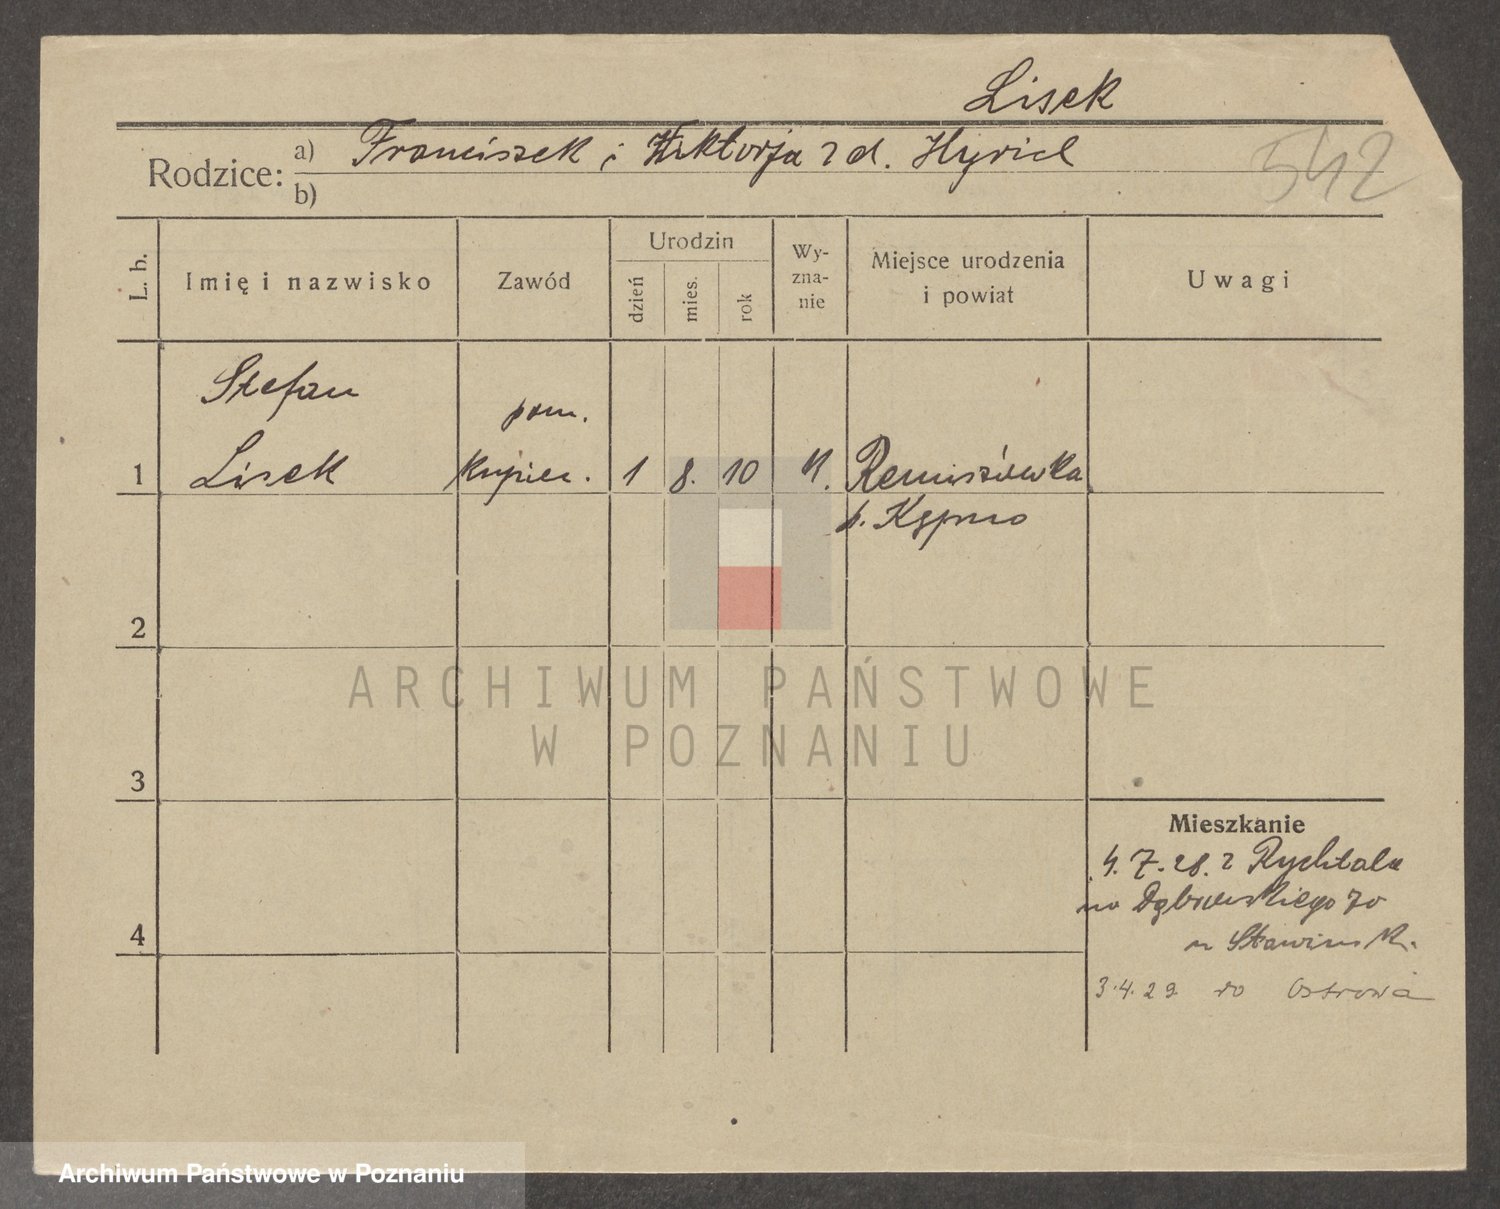 Lisek
Rodzice: a) Franciszek i Wiktorja z d. Hyrick
b)
542
L. b.
Imię i nazwisko
Zawód
Urodzin
dzień
mies.
rok
Wy-
zna-
nie
Miejsce urodzenia
i powiat
Uwagi
Stefan
pom.
1 Lisek kupiec. 1 8. 10 Remiszówka
p. Kępno
2
3
4
Mieszkanie
4. 7. 28. z Rychtala
na Dąbrowskiego 70
u Stawins
3.4.29 do Ostrowa
ARCHIWUM PAŃSTWOWE
W POZNANIU
Archiwum Państwowe w Poznaniu